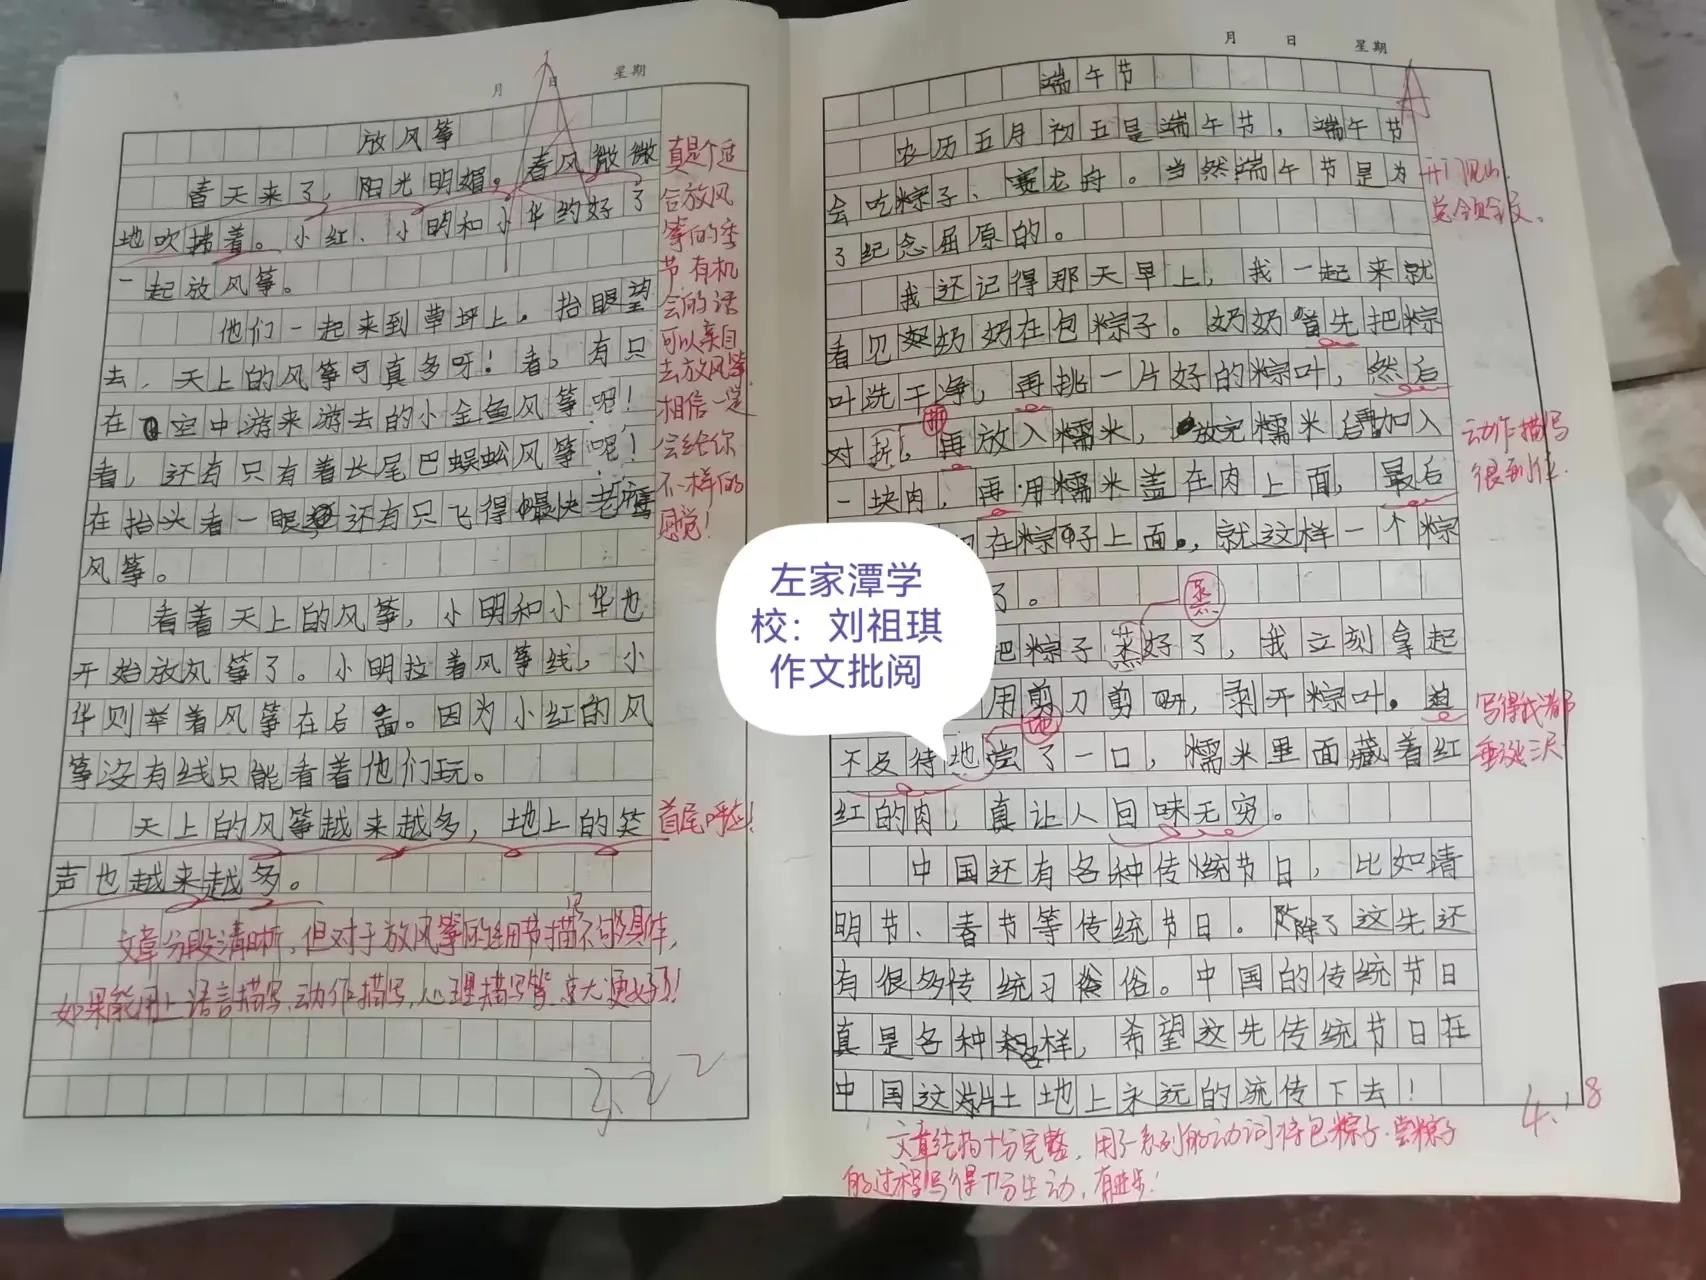 月 日 星期
放风筝
春天来了，阳光明媚。春风微微
地吹拂着。小红、小明和小华约好了
一起放风筝。
他们一起来到草坪上。抬眼望
去，天上的风筝可真多呀！看，有只
在空中游来游去的小金鱼风筝呢！
看，还有只有着长尾巴蜈蚣风筝呢！
在抬头看一眼还有只飞得最快老鹰
风筝。
看着天上的风筝，小明和小华也
开始放风筝了。小明拉着风筝线，小
华则举着风筝在后面。因为小红的风
筝没有线只能看着他们玩。
天上的风筝越来越多，地上的笑
声也越来越多。
真是个适
合放风
筝的季
节有机
会的话
可以亲自
去放风筝
相信一定
会给你
不一样的
感觉！
首尾呼应！
文章分段清晰，但对于放风筝的细节描写不够具体，
如果能用上语言描写、动作描写、心理描写等就更好了！
3.22
左家潭学
校：刘祖琪
作文批阅
月 日 星期
端午节
农历五月初五是端午节，端午节
会吃粽子、赛龙舟。当然端午节是为
了纪念屈原的。
我还记得那天早上，我一起来就
看见奶奶在包粽子。奶奶首先把粽
叶洗干净，再挑一片好的粽叶，然后
对折，再放入糯米，放完糯米后加入
一块肉，再用糯米盖在肉上面，最后
在粽子上面，就这样一个粽
了。
把粽子蒸好了，我立刻拿起
用剪刀剪开，剥开粽叶。迫
不及待地尝了一口，糯米里面藏着红
红的肉，真让人回味无穷。
中国还有各种传统节日，比如清
明节、春节等传统节日。除了这先还
有很多传统习俗。中国的传统节日
真是各种各样，希望这先传统节日在
中国这片土地上永远的流传下去！
开门见山，
总领全文。
动作描写
很到位。
蒸
地
写得我都
垂涎三尺
文章结构十分完整，用了系列的动词将包粽子、尝粽子
的过程写得十分生动，有进步！
4.18